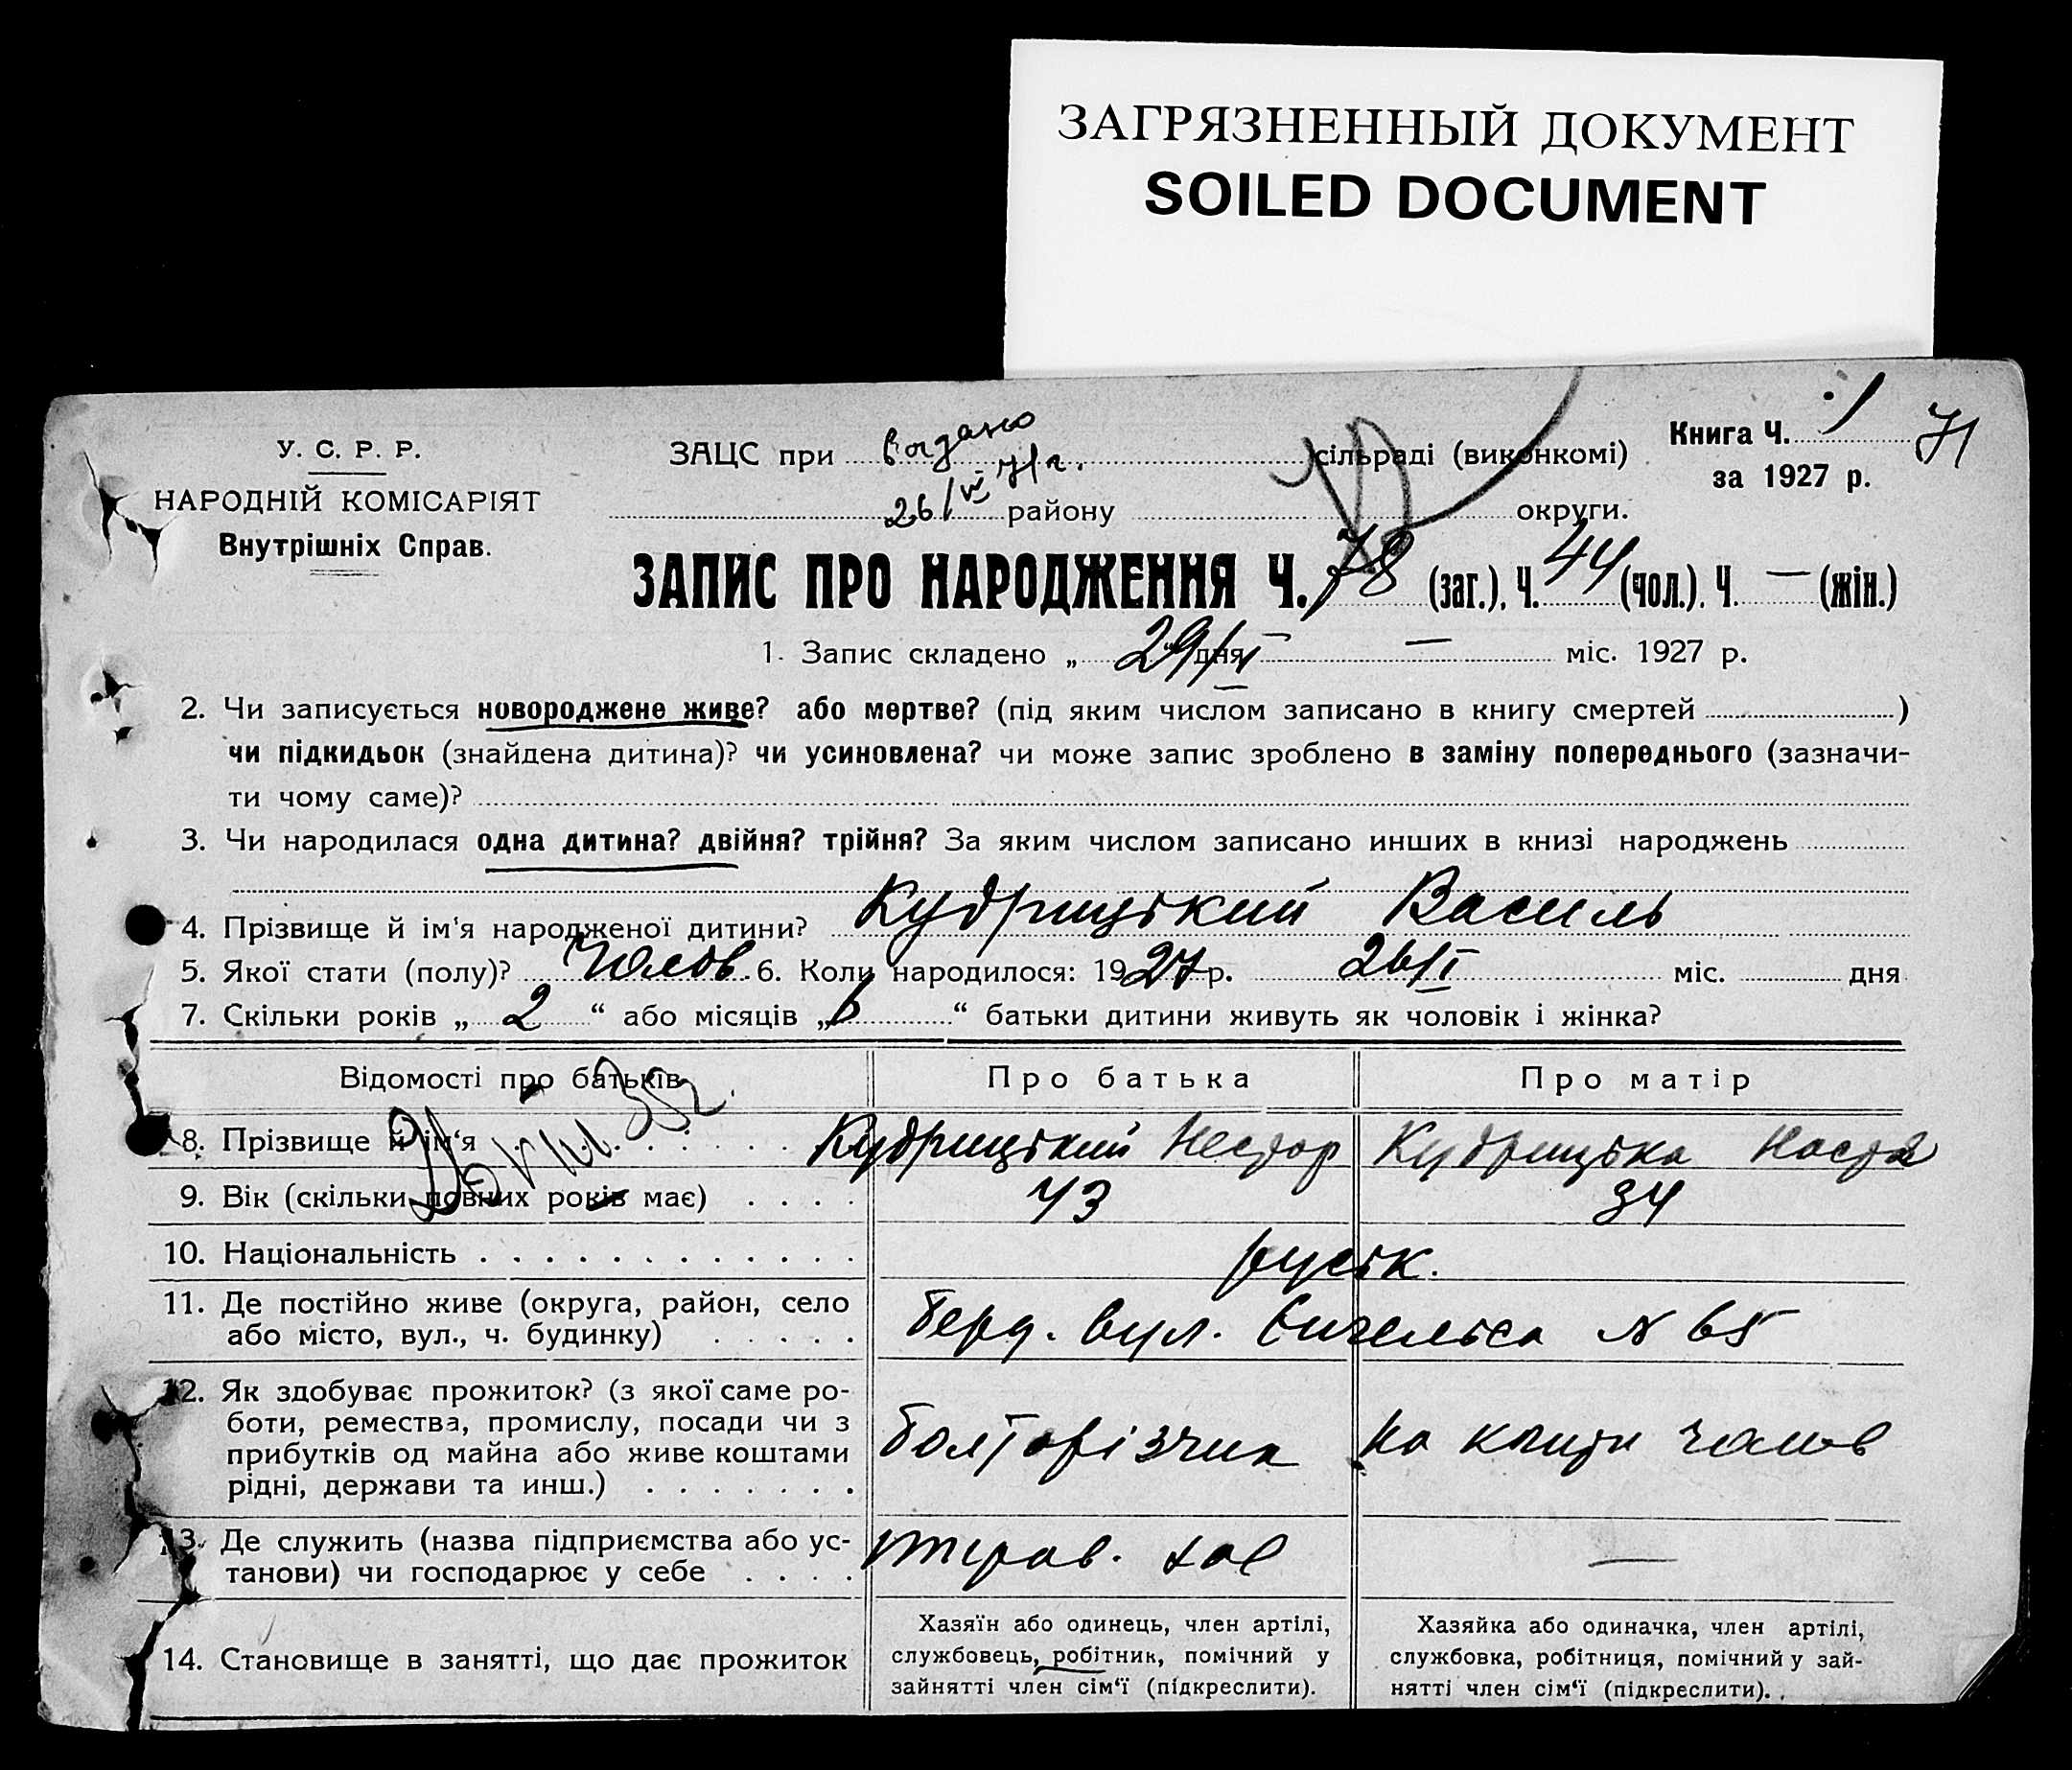 ЗАГРЯЗНЕННЫЙ ДОКУМЕНТ
SOILED DOCUMENT
У. С. Р. Р.
НАРОДНІЙ КОМІСАРІЯТ
Внутрішніх Справ.
ЗАЦС при видано сільраді (виконкомі)
26/VI 71г. району округи.
Книга Ч. 1
за 1927 р.
71
ЗАПИС ПРО НАРОДЖЕННЯ Ч. 78 (заг.), Ч. 44 (чол.), Ч. — (жін.)
1. Запис складено „ 29/I “ дня — міс. 1927 р.
2. Чи записується новороджене живе? або мертве? (під яким числом записано в книгу смертей )
чи підкидьок (знайдена дитина)? чи усиновлена? чи може запис зроблено в заміну попереднього (зазначи-
ти чому саме)?
3. Чи народилася одна дитина? двійня? трійня? За яким числом записано инших в книзі народжень
4. Прізвище й ім‘я народженої дитини? Кудрицький Василь
5. Якої стати (полу)? Чолов. 6. Коли народилося: 1927 р. 26/I міс. дня
7. Скільки років „ 2 “ або місяців „ “ батьки дитини живуть як чоловік і жінка?
Відомості про батьків
Про батька
Про матір
8. Прізвище й ім‘я Кудрицький Нестор Кудрицька Настя
9. Вік (скільки повних років має) 43 34
10. Національність руськ.
11. Де постійно живе (округа, район, село
або місто, вул., ч. будинку)
Берд. вул. Енгельса № 65
12. Як здобуває прожиток? (з якої саме ро-
боти, ремества, промислу, посади чи з
прибутків од майна або живе коштами
рідні, держави та инш.)
болторізчик
на кошти чолов
13. Де служить (назва підприємства або ус-
танови) чи господарює у себе
—
14. Становище в занятті, що дає прожиток
Хазяїн або одинець, член артілі,
службовець, робітник, помічний у
зайнятті член сім‘ї (підкреслити).
Хазяйка або одиначка, член артілі,
службовка, робітниця, помічний у зай-
нятті член сім‘ї (підкреслити).